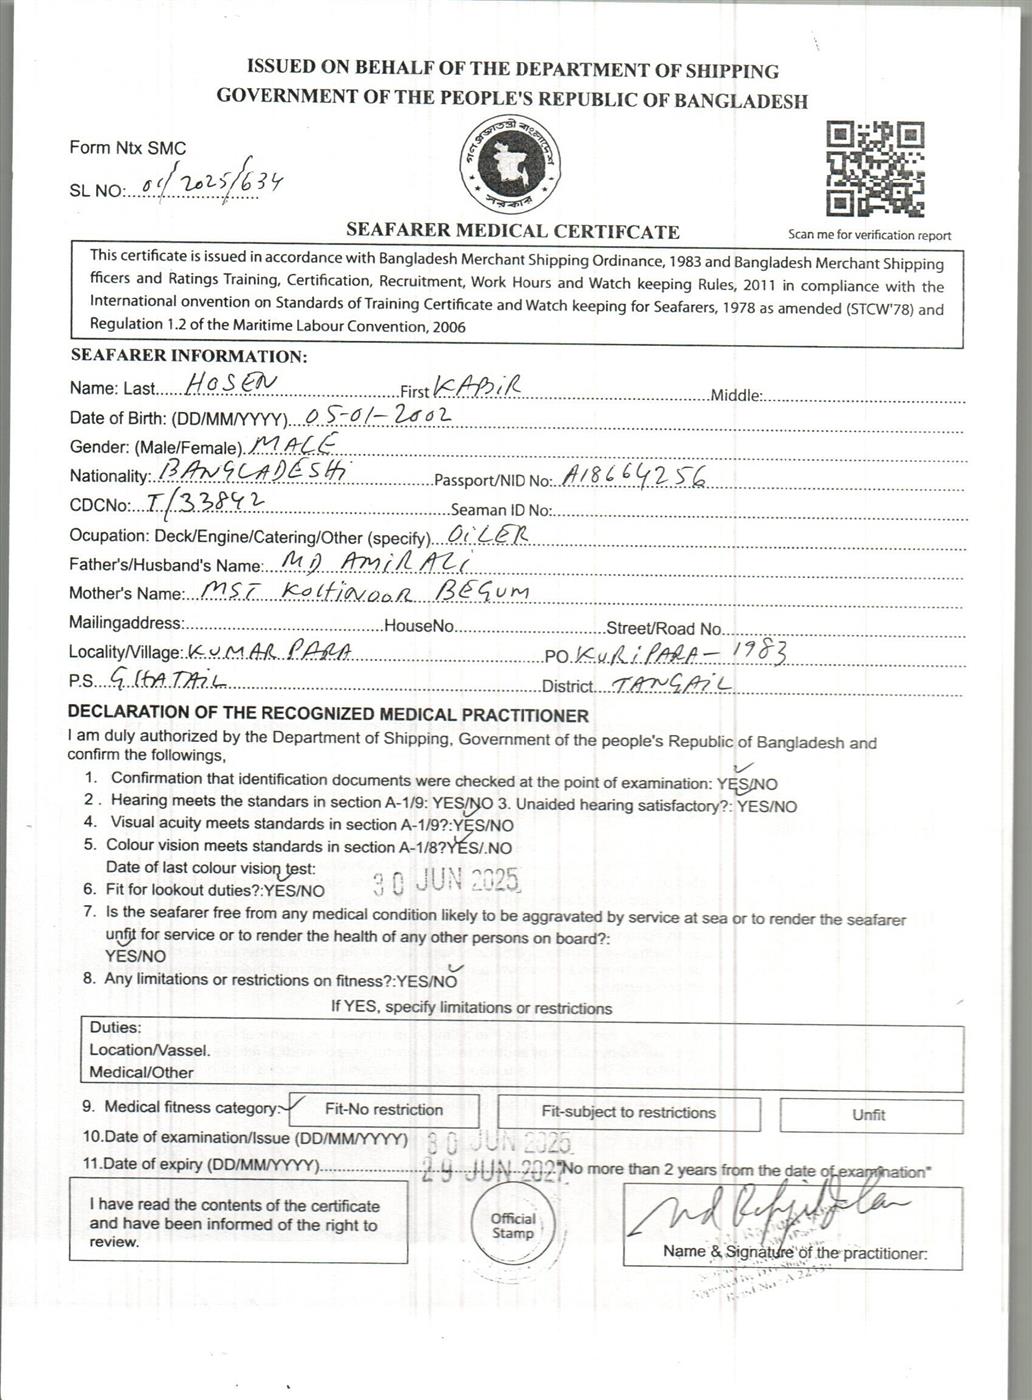 ISSUED ON BEHALF OF THE DEPARTMENT OF SHIPPING
GOVERNMENT OF THE PEOPLE'S REPUBLIC OF BANGLADESH
গণপ্রজাতন্ত্রী বাংলাদেশ
সরকার
Form Ntx SMC
SL NO:..01/2025/634
SEAFARER MEDICAL CERTIFCATE
Scan me for verification report
This certificate is issued in accordance with Bangladesh Merchant Shipping Ordinance, 1983 and Bangladesh Merchant Shipping
fficers and Ratings Training, Certification, Recruitment, Work Hours and Watch keeping Rules, 2011 in compliance with the
International onvention on Standards of Training Certificate and Watch keeping for Seafarers, 1978 as amended (STCW'78) and
Regulation 1.2 of the Maritime Labour Convention, 2006
SEAFARER INFORMATION:
Name: Last....HOSEN....First KABiR....Middle:
Date of Birth: (DD/MM/YYYY)...05-01-2002
Gender: (Male/Female). MALE
Nationality: BANGLADESHi Passport/NID No: A18664256
CDCNo: T/33842 Seaman ID No:
Ocupation: Deck/Engine/Catering/Other (specify)...OiLER
Father's/Husband's Name: MD AMiR ALi
Mother's Name: MST KOHiNOOR BEGUM
Mailingaddress: HouseNo Street/Road No
Locality/Village: KUMAR PARA PO. KURiPARA-1983
P.S...GHATAiL District...TANGAiL
DECLARATION OF THE RECOGNIZED MEDICAL PRACTITIONER
I am duly authorized by the Department of Shipping, Government of the people's Republic of Bangladesh and
confirm the followings,
1. Confirmation that identification documents were checked at the point of examination: YES/NO
2 . Hearing meets the standars in section A-1/9: YES/NO 3. Unaided hearing satisfactory?: YES/NO
4. Visual acuity meets standards in section A-1/9?:YES/NO
5. Colour vision meets standards in section A-1/8?YES/.NO
Date of last colour vision test: 30 JUN 2025
6. Fit for lookout duties?:YES/NO
7. Is the seafarer free from any medical condition likely to be aggravated by service at sea or to render the seafarer
unfit for service or to render the health of any other persons on board?:
YES/NO
8. Any limitations or restrictions on fitness?:YES/NO
If YES, specify limitations or restrictions
Duties:
Location/Vassel.
Medical/Other
9. Medical fitness category: Fit-No restriction Fit-subject to restrictions Unfit
10.Date of examination/Issue (DD/MM/YYYY) 30 JUN 2025
11.Date of expiry (DD/MM/YYYY) 29 JUN 2027 "No more than 2 years from the date of examination"
I have read the contents of the certificate
and have been informed of the right to
review.
Official
Stamp
Name & Signature of the practitioner: